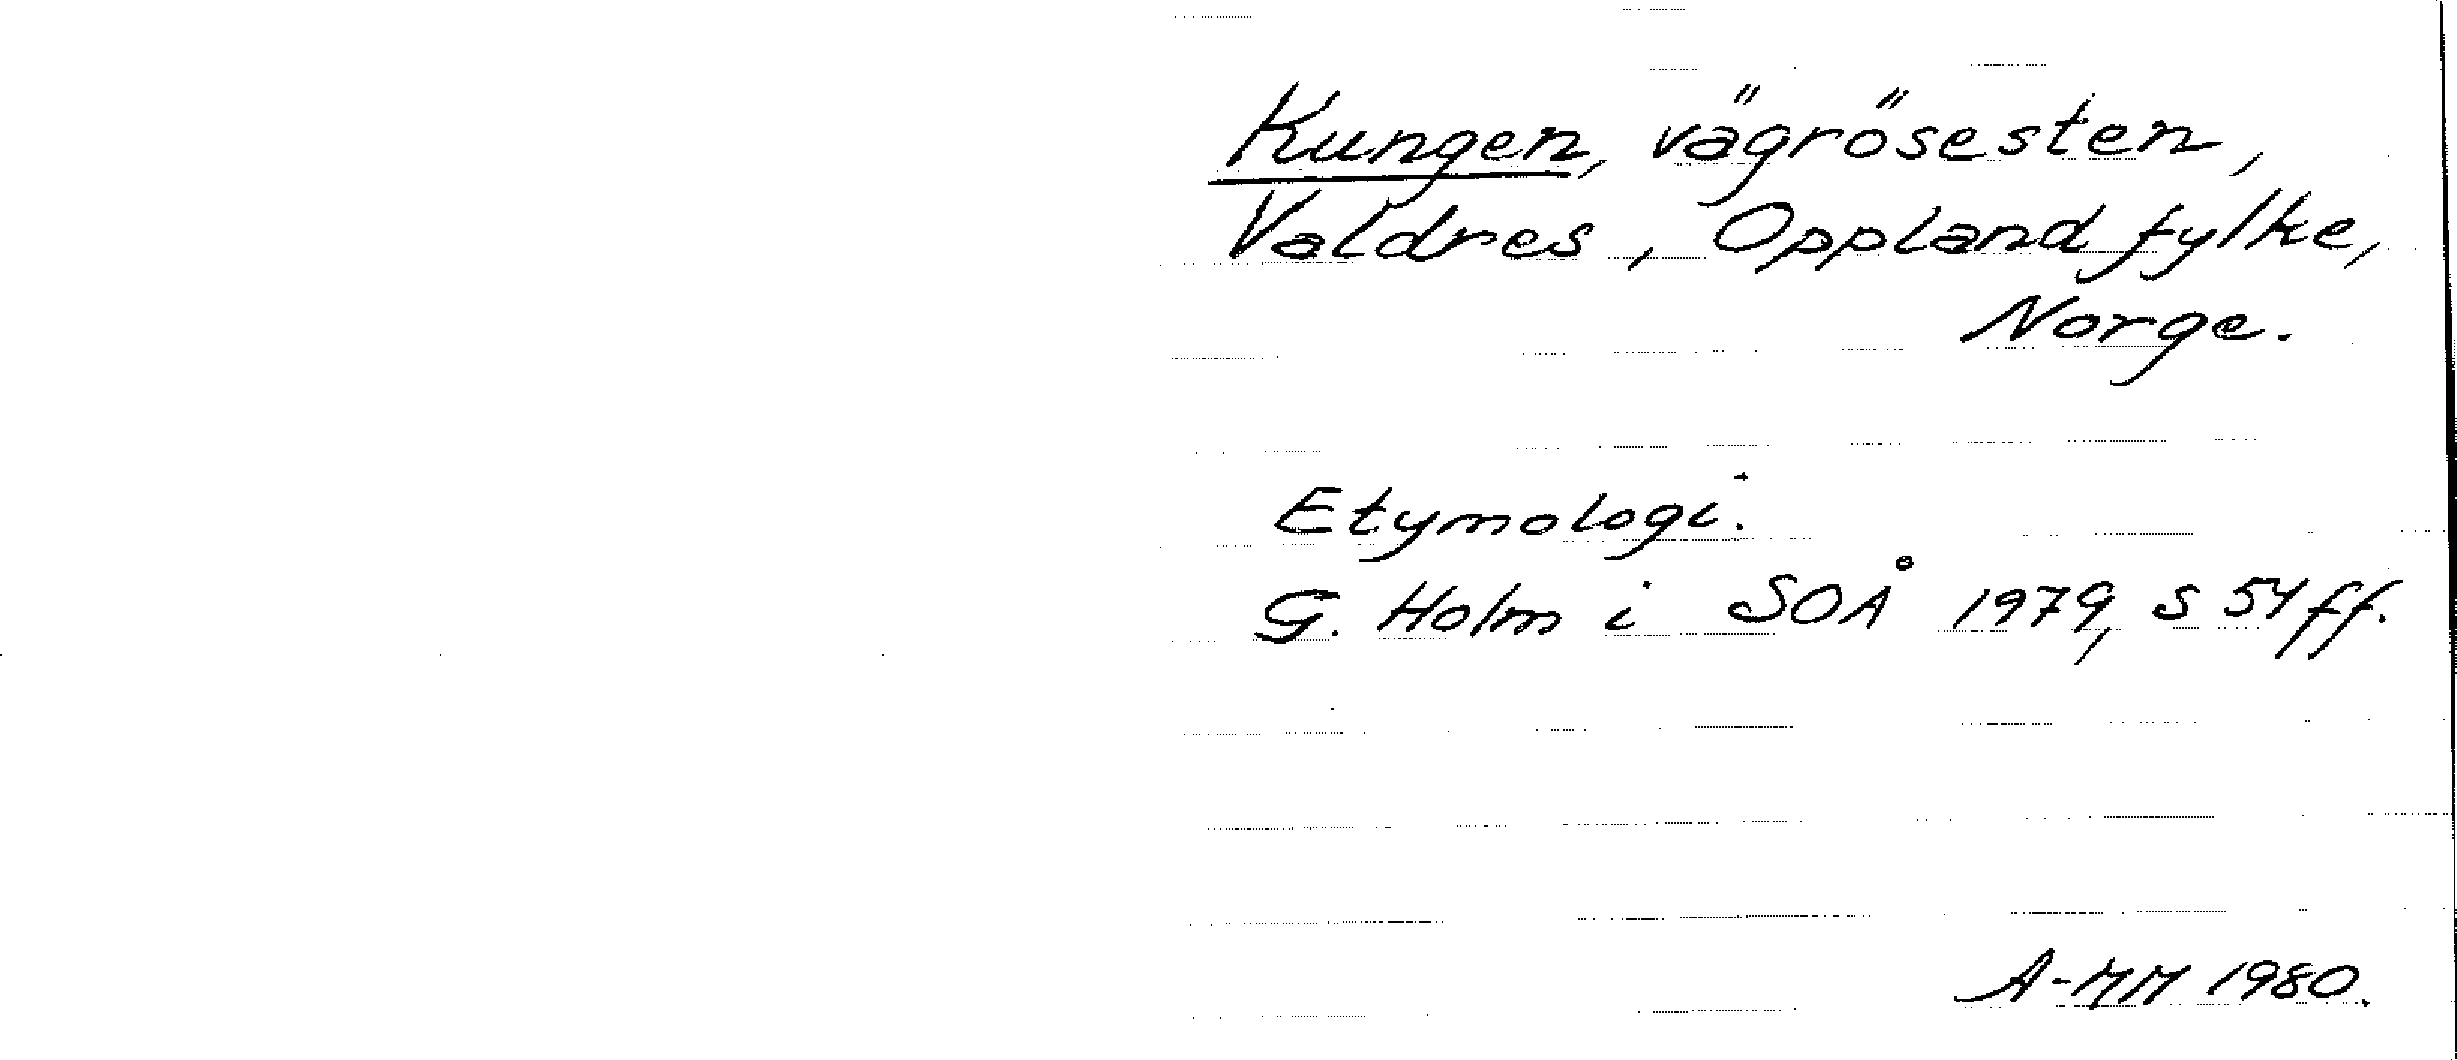 Kungen, vägrösesten,
Valdres, Oppland fylke,
Norge.
Etymologi:
G. Holm i SOÅ 1979, s 54 ff.
A-MM 1980.